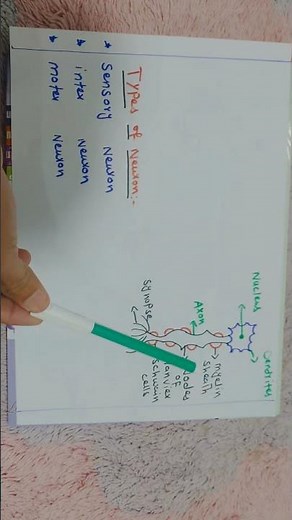 Types of Neuron:-
* Sensory Neuron
* inter Neuron
* motor Neuron
Nucleus
Dendrites
Axon
myelin
sheath
Nodes
of
Ranvier
schwann
cells
Synapse